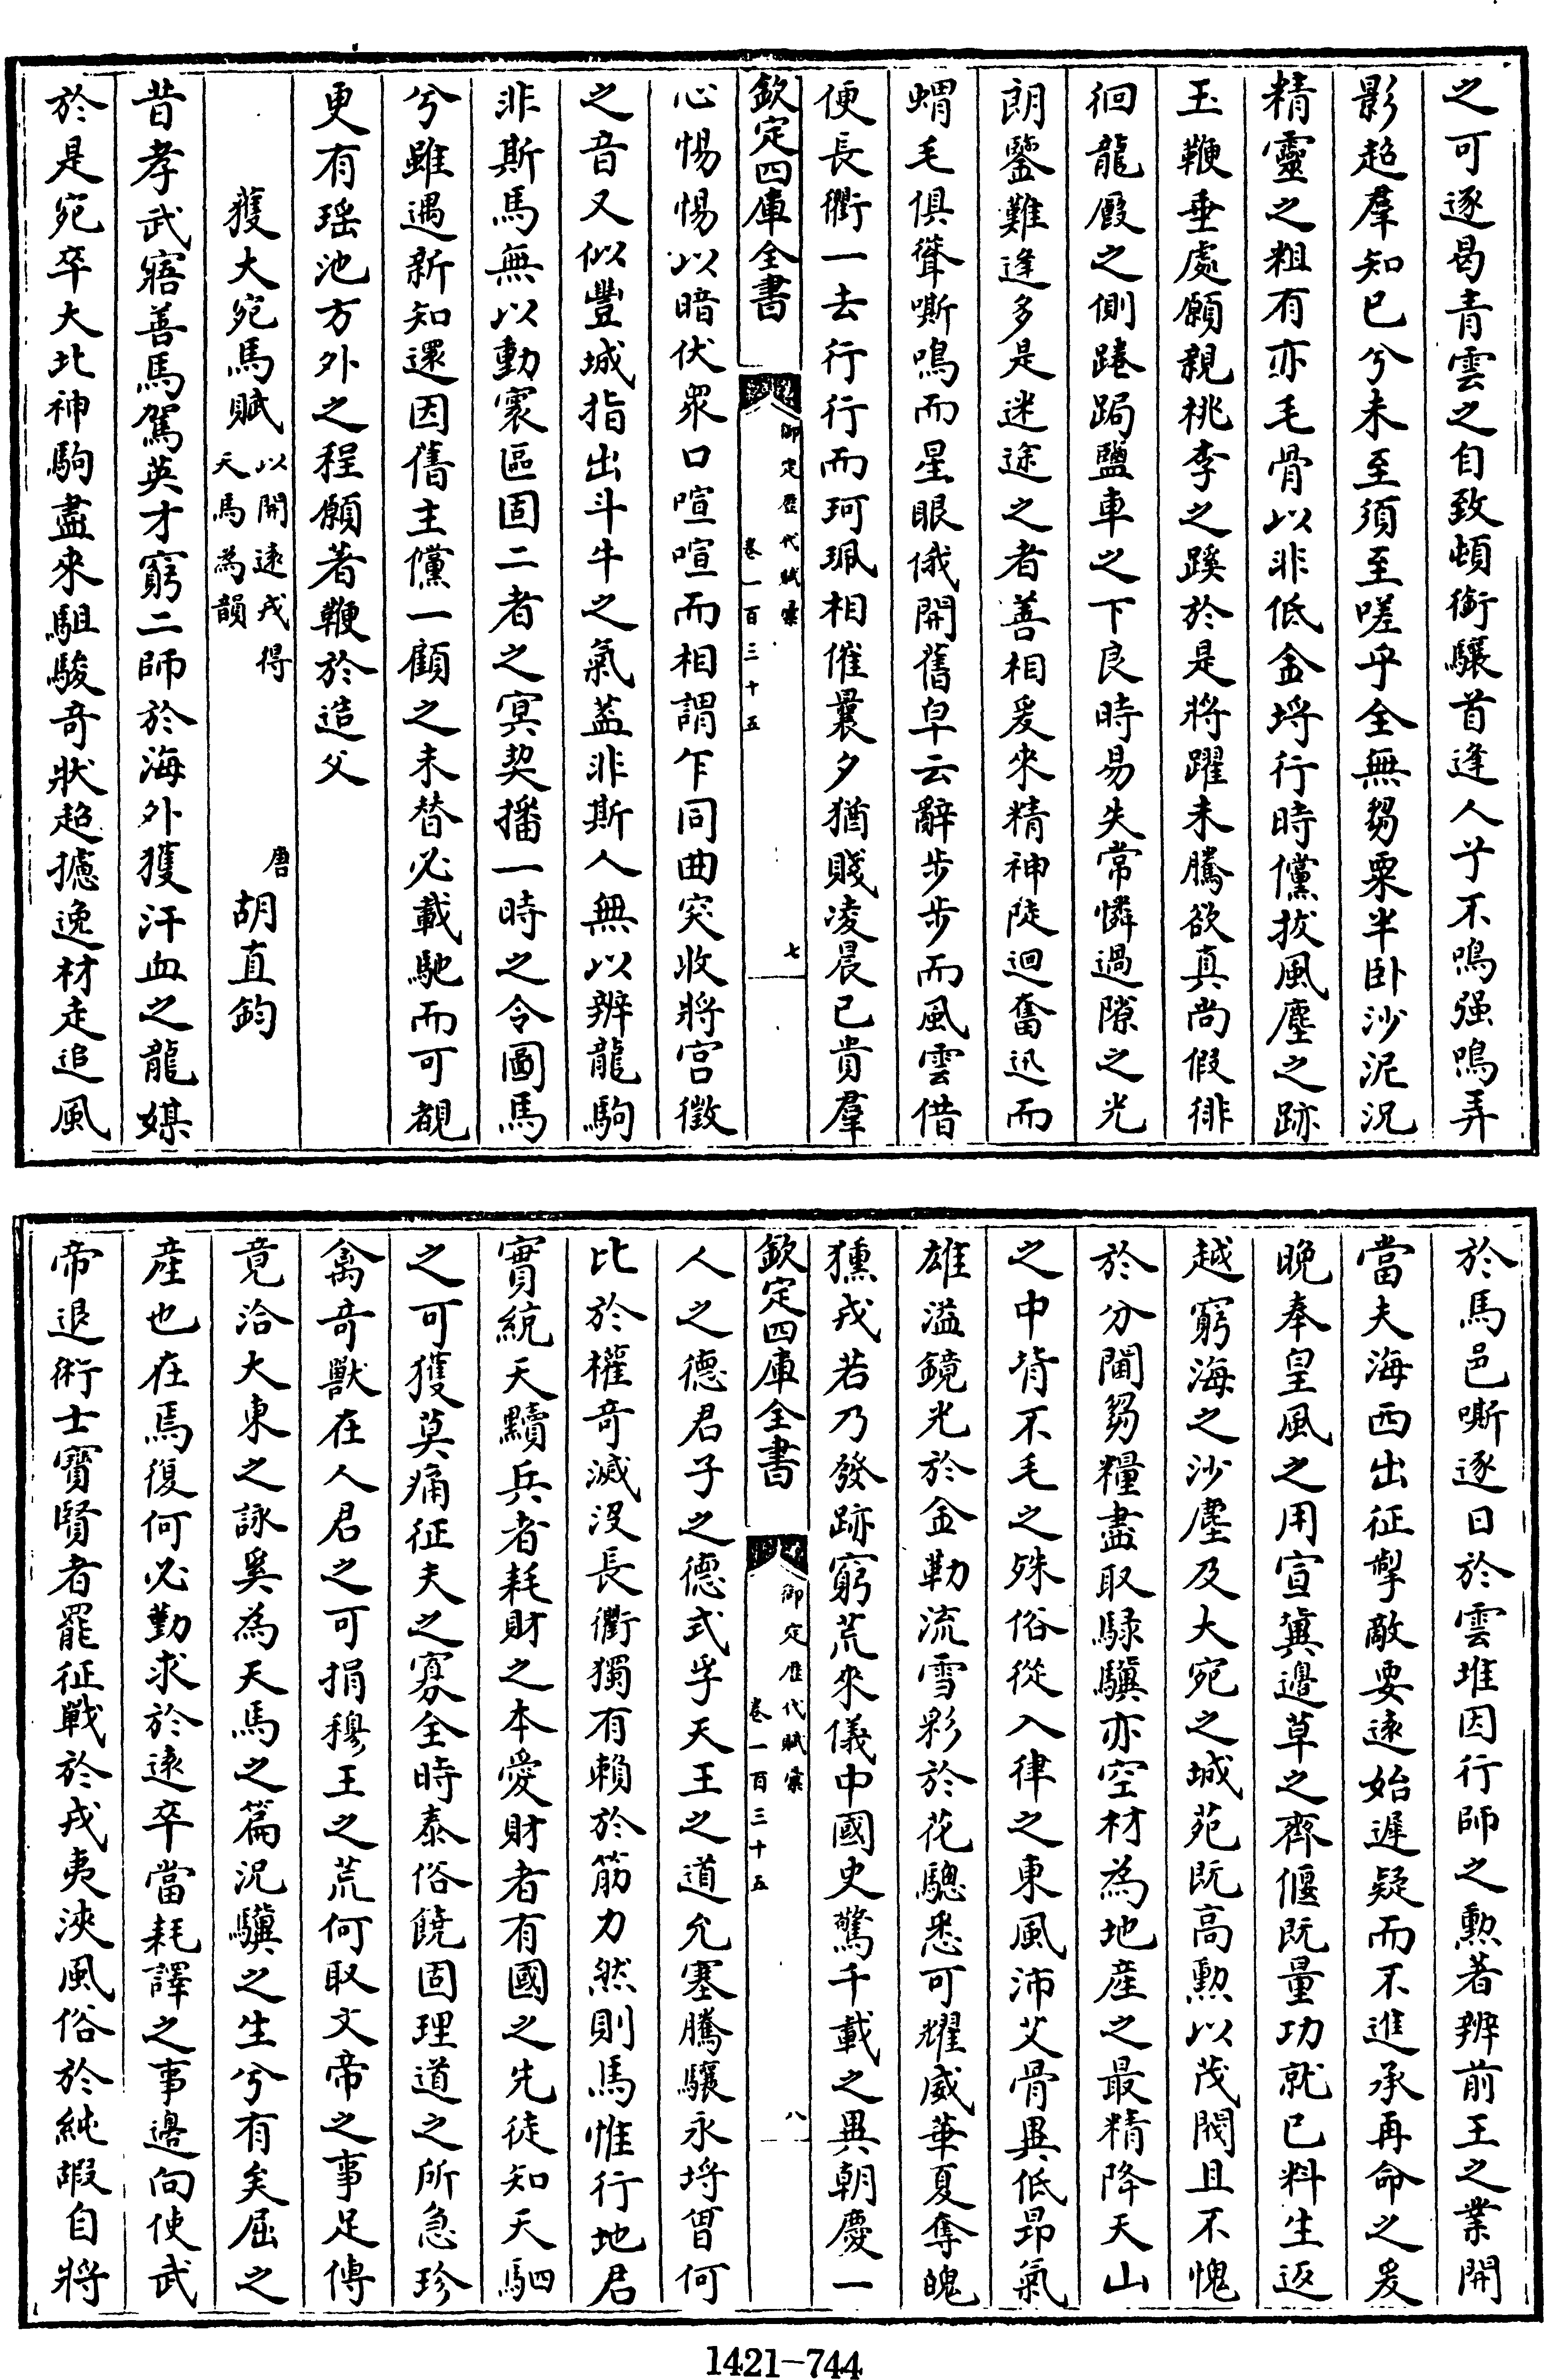 之可逐曷青雲之自致頓銜驤首逢人兮不鳴强鳴弄
影超羣知已兮未至須至嗟乎全無芻粟半卧沙泥況
精靈之粗有亦毛骨以非低金埒行時儻拔風塵之跡
玉鞭垂處願親桃李之蹊於是將躍未騰欲真尚假徘
徊龍廐之側踡跼鹽車之下良時易失常憐過隙之光
朗鑒難逢多是迷途之者善相爰來精神陡迴奮迅而
蝟毛俱聳嘶鳴而星眼俄開舊皁云辭步步而風雲借
便長衢一去行行而珂珮相催曩夕猶賤凌晨已貴羣
欽定四庫全書
御定歴代賦彚
卷一百三十五
七
心惕惕以暗伏衆口喧喧而相謂乍同曲突收將宫徵
之音又似豐城指出斗牛之氣葢非斯人無以辨龍駒
非斯馬無以動寰區固二者之冥契播一時之令圖馬
兮雖遇新知還因舊主儻一顧之未替必載馳而可覩
更有瑶池方外之程願著鞭於造父
獲大宛馬賦
以開遠戎得
天馬為韻
唐
胡直鈞
昔孝武寤善馬駕英才窮二師於海外獲汗血之龍媒
於是宛卒大北神駒盡來駔駿奇狀超攄逸材走追風
於馬邑嘶逐日於雲堆因行師之勲著辨前王之業開
當夫海西出征掣敵要遠始遲疑而不進承再命之爰
晩奉皇風之用宣冀邊草之齊偃既量功就已料生返
越窮海之沙塵及大宛之城苑既高勲以茂閥且不愧
於分閫芻糧盡取騄驥亦空材為地産之最精降天山
之中背不毛之殊俗從入律之東風沛艾骨異低昻氣
雄溢鏡光於金勒流雪彩於花驄悉可耀威華夏奪魄
獯戎若乃發跡窮荒來儀中國史驚千載之異朝慶一
欽定四庫全書
御定歴代賦彚
卷一百三十五
八
人之德君子之德式孚天王之道允塞騰驤永埒曾何
比於權竒滅没長衢獨有賴於筋力然則馬惟行地君
實統天黷兵者耗財之本愛財者有國之先徒知天駟
之可獲莫痛征夫之寡全時泰俗饒固理道之所急珍
禽奇獸在人君之可捐穆王之荒何取文帝之事足傳
竟洽大東之詠奚為天馬之篇況驥之生兮有矣屈之
産也在焉復何必勤求於遠卒當耗譯之事邊向使武
帝退術士寳賢者罷征戰於戎夷浹風俗於純嘏自將
1421-744